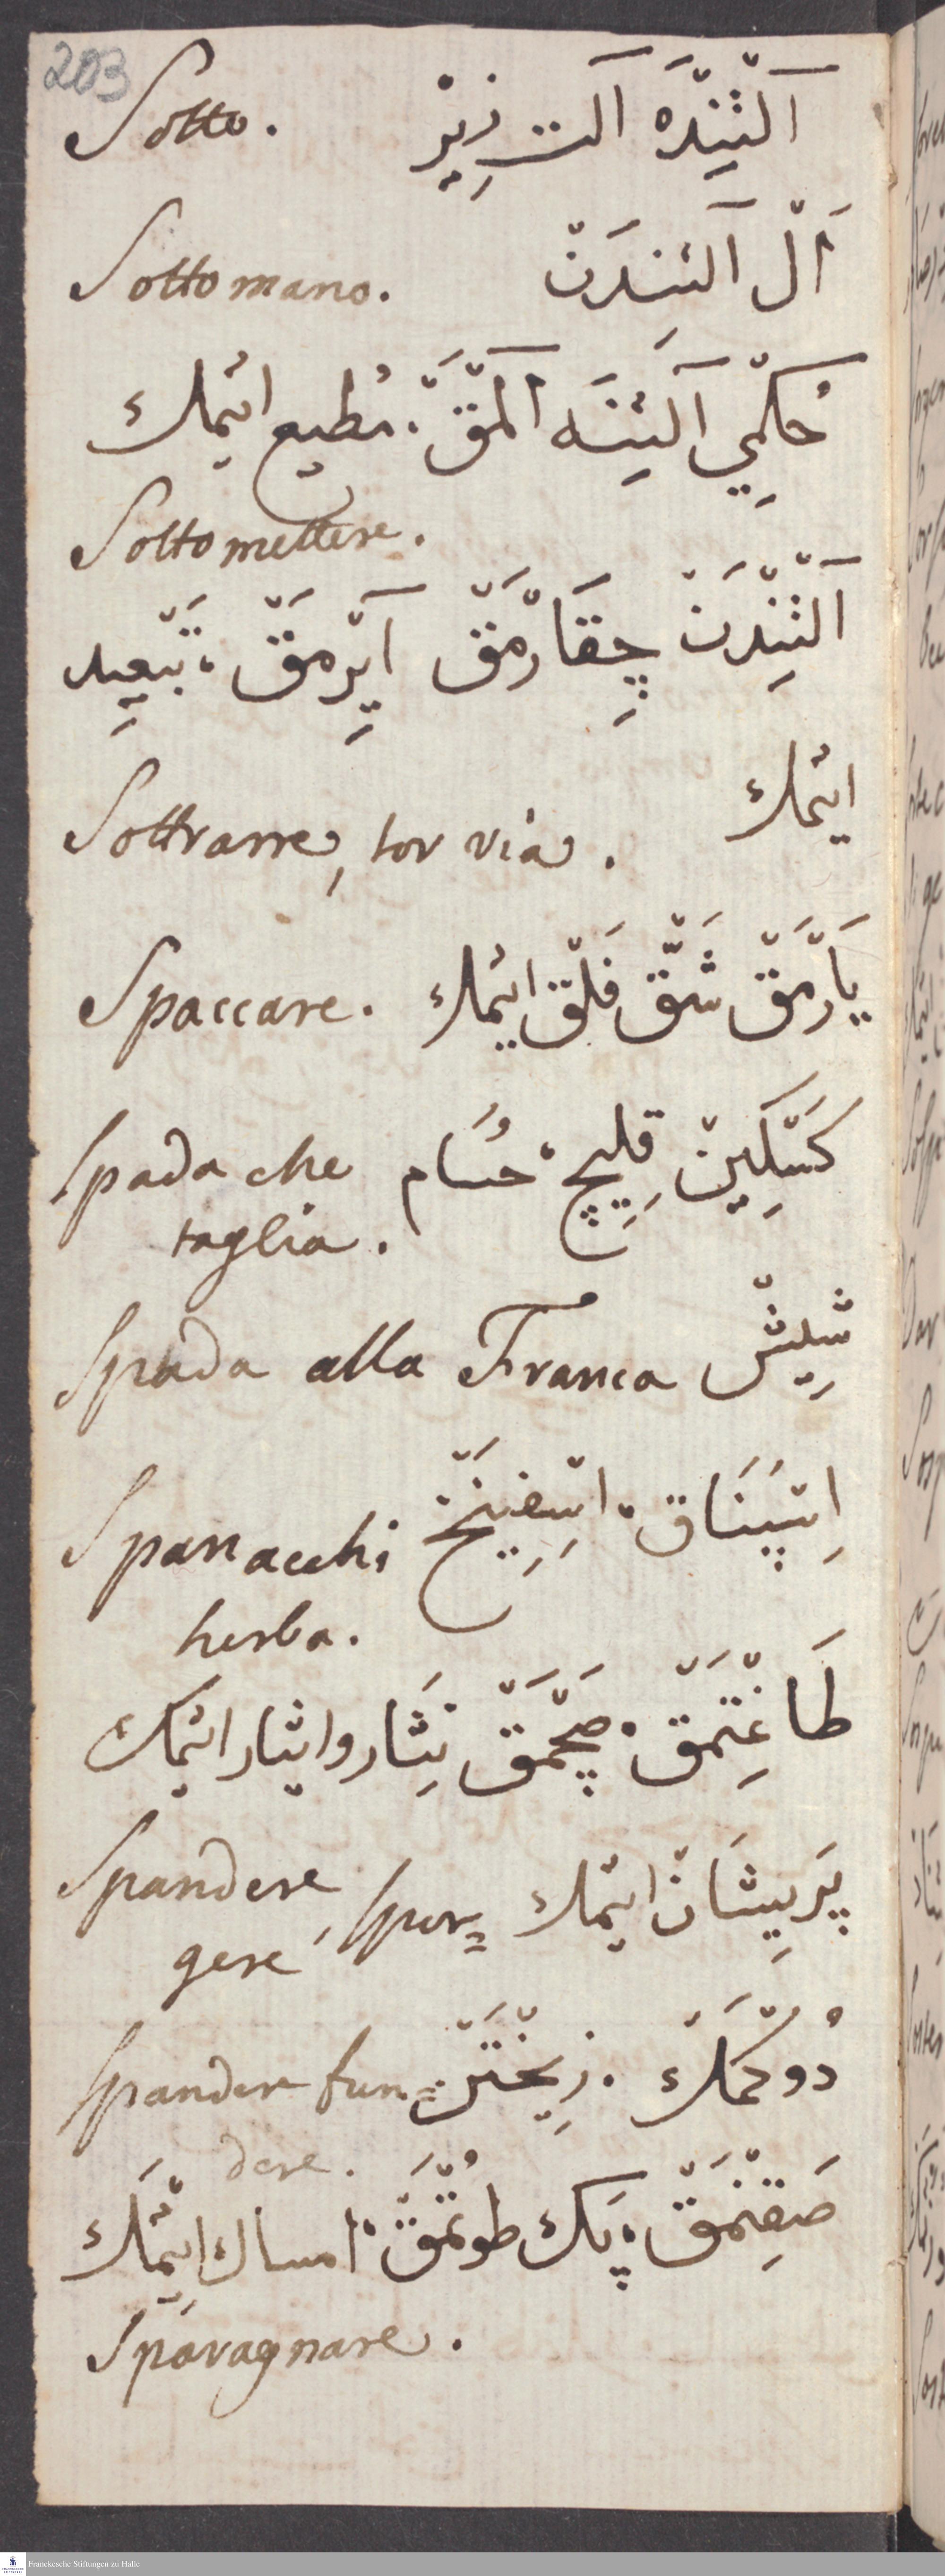 203
Sotto. آلْتِنْدَه آلت زِيْرْ
Sotto mano. اَلْ آلتِندَنْ
حُكْمِي آلتِنَه آلْمَقْ. مُطيع ايتْمك
Sotto mettere.
آلْتِنْدَنْ چِقَارْمَقْ آيِرْمَقْ، تَبْعِيد
ايتْمك
Sottrarre, tor via.
Spaccare. يَارْمَقْ شَقّ فَلْق ايتْمك
Spada che كَسْكِينْ قِلِيچ، حُسَام
taglia.
Spada alla Franca شِيشْ
Spanacchi اِسپَنَاق، اسْفِينَخْ
herba.
طَاغِتْمَقْ، صَچْمَقْ نِثَار وايثار ايتْمك
Spandere, spar= پَرِيشَانْ ايتْمك
gere
Spandere fun= دُوكْمَكْ. رِيخْتَنْ
dere.
صَقِنْمَقْ، پَك طوُتْمَقْ، امساك ايتْمَك
Sparagnare.
Franckesche Stiftungen zu Halle